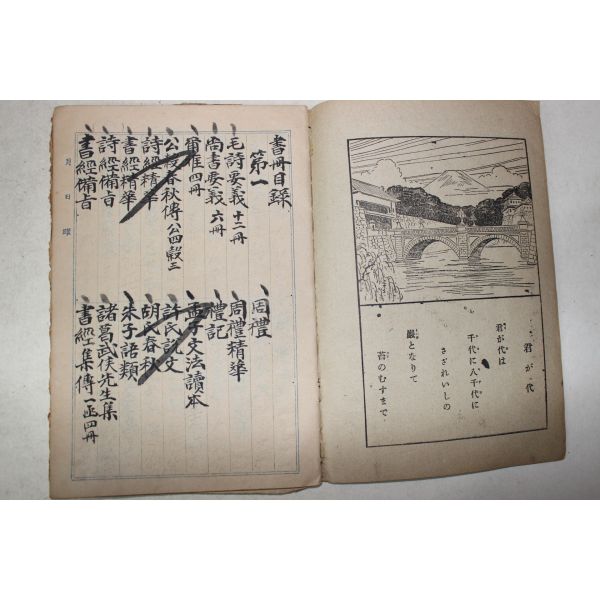 君が代
君が代は
千代に八千代に
さざれいしの
巌となりて
苔のむすまで
書冊目録
第一
毛詩要義 十二冊
尚書要義 六冊
爾雅 四冊
公穀春秋傳 公四穀三
詩經精華
書經精華
詩經備旨
書經備旨
周禮
周禮精華
禮記
孟子文法讀本
許氏說文
胡氏春秋
朱子語類
諸葛武侯先生集
書經集傳 一函四冊
月 日 曜